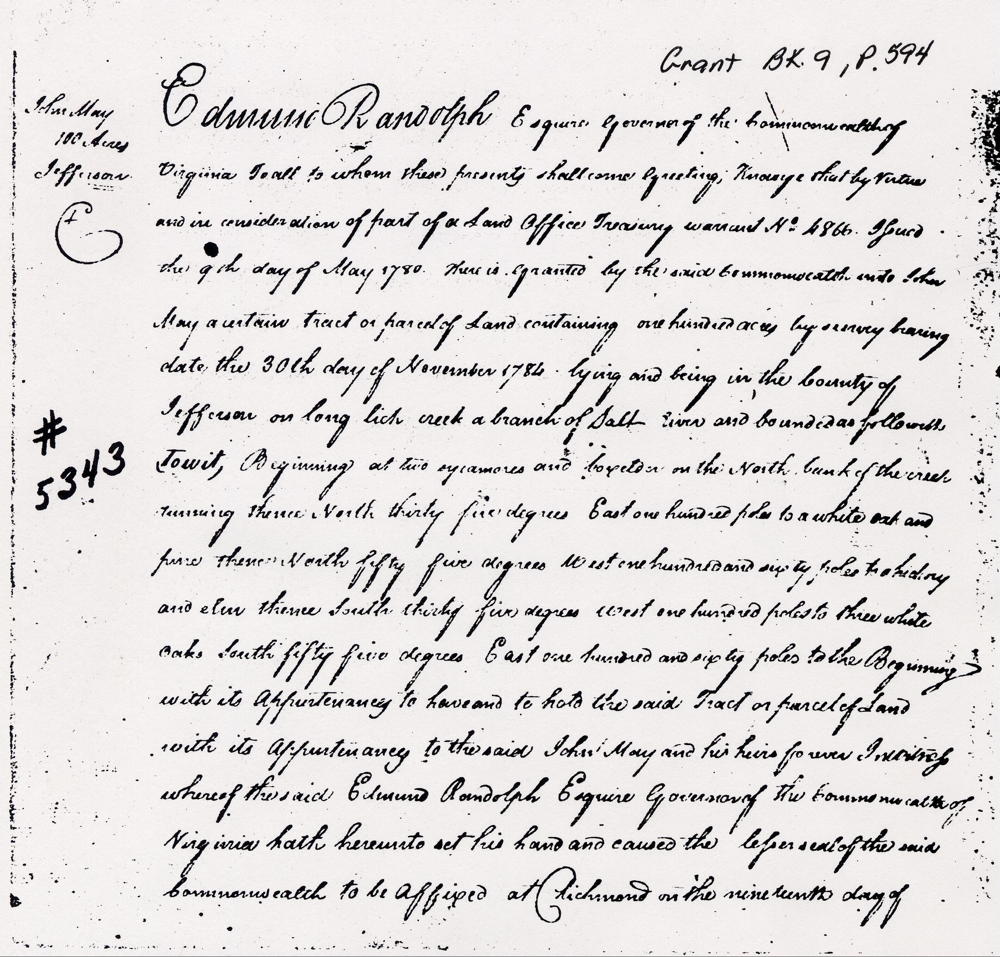 Grant BK. 9, P. 594
John May
100 Acres
Jefferson
#
5343
Edmund Randolph Esquire Governor of the Commonwealth of
Virginia To all to whom these presents shall come Greeting, Know ye that by Virtue
and in consideration of part of a Land Office Treasury warrant No. 4866. Issued
the 9th day of May 1780. there is granted by the said Commonwealth unto John
May a certain tract or parcel of Land containing one hundred acres by survey bearing
date the 30th day of November 1784. lying and being in the County of
Jefferson on long lick creek a branch of Salt River and bounded as followeth
Towit, Beginning at two sycamores and boxelder on the North bank of the creek
running thence North thirty five degrees East one hundred poles to a white oak and
thence North fifty five degrees West one hundred and sixty poles to a hickory
and elm thence South thirty five degrees west one hundred poles to three white
oaks South fifty five degrees East one hundred and sixty poles to the Beginning
with its Appurtenances to have and to hold the said Tract or parcel of Land
with its Appurtenances to the said John May and his heirs forever In witness
whereof the said Edmund Randolph Esquire Governor of the Commonwealth of
Virginia hath hereunto set his hand and caused the lesser seal of the said
Commonwealth to be Affixed at Richmond on the nineteenth day of